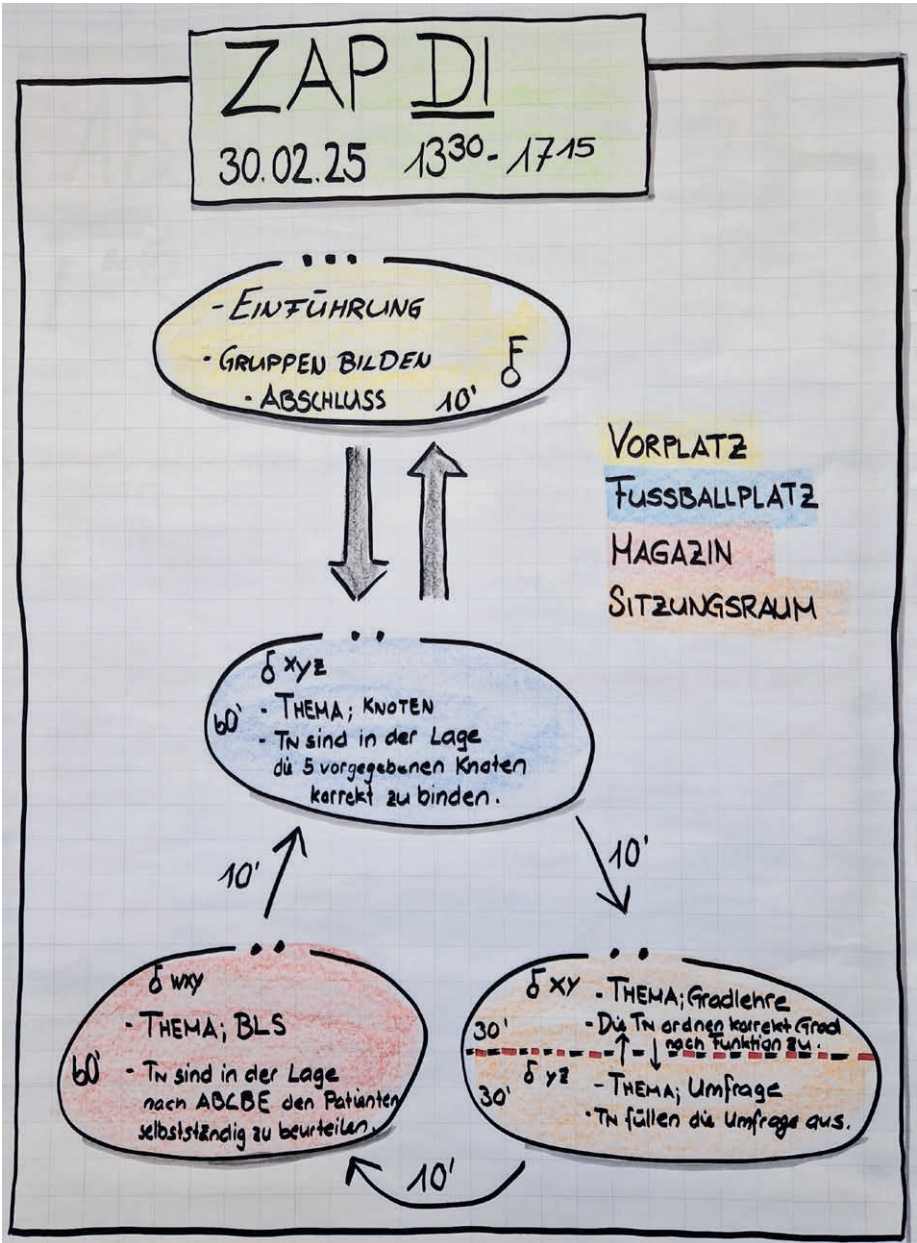 ZAP DI
30.02.25 13³⁰- 17¹⁵
- EINFÜHRUNG
· GRUPPEN BILDEN
· ABSCHLUSS 10'
F
VORPLATZ
FUSSBALLPLATZ
MAGAZIN
SITZUNGSRAUM
xyz
60' - THEMA; KNOTEN
- TN sind in der Lage
die 5 vorgegebenen Knoten
korrekt zu binden.
10'
10'
wxy
- THEMA; BLS
60' - TN sind in der Lage
nach ABCBE den Patienten
selbstständig zu beurteilen.
xy - THEMA; Gradlehre
30' - Die TN ordnen korrekt Grad
nach Funktion zu.
yz - THEMA; Umfrage
30' · TN füllen die Umfrage aus.
10'